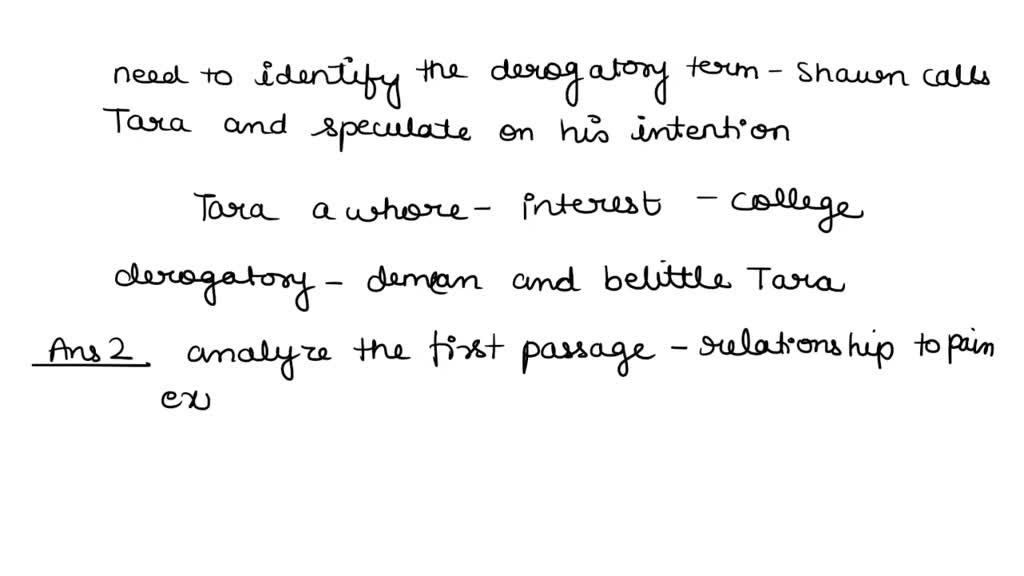 need to identify the derogatory term - Shawn calls
Tara and speculate on his intention
Tara a whore - interest - college
derogatory - demean and belittle Tara
Ans 2 analyze the first passage - relationship to pain
ex